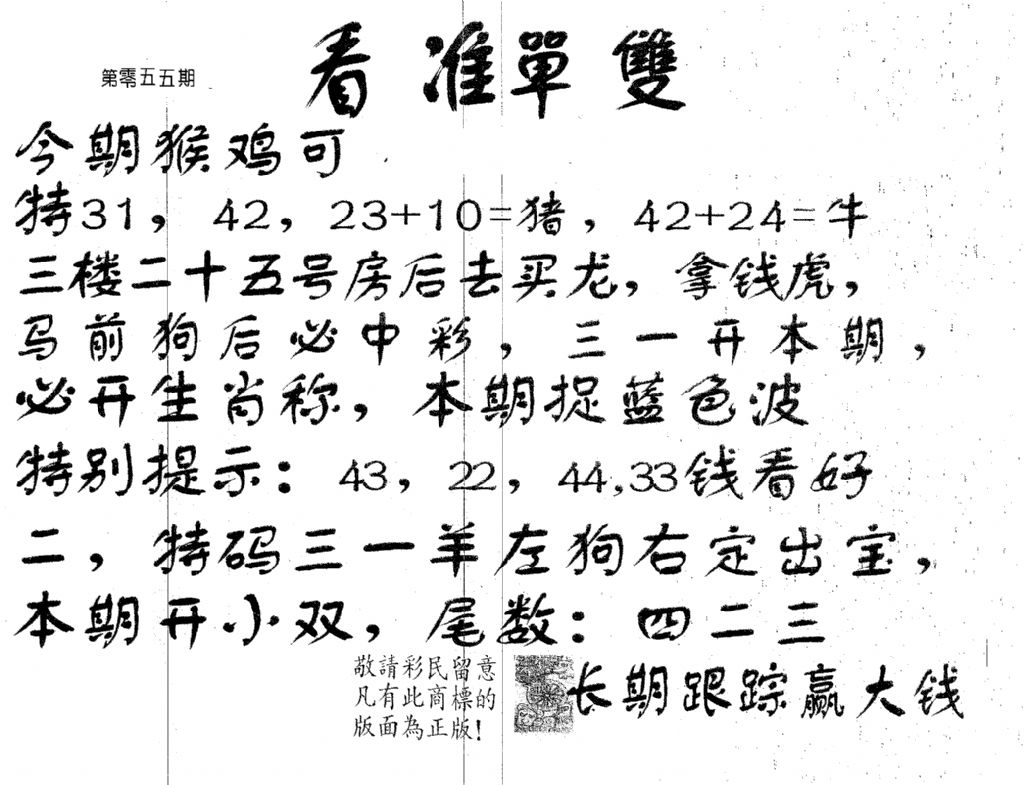 第零五五期
看准單雙
今期猴鸡可
特31，42，23+10=猪，42+24=牛
三楼二十五号房后去买龙，拿钱虎，
马前狗后必中彩，三一开本期，
必开生肖称，本期捉蓝色波
特别提示：43，22，44,33钱看好
二，特码三一羊左狗右定出宝，
本期开小双，尾数：四二三
敬請彩民留意
凡有此商標的
版面為正版！
长期跟踪赢大钱